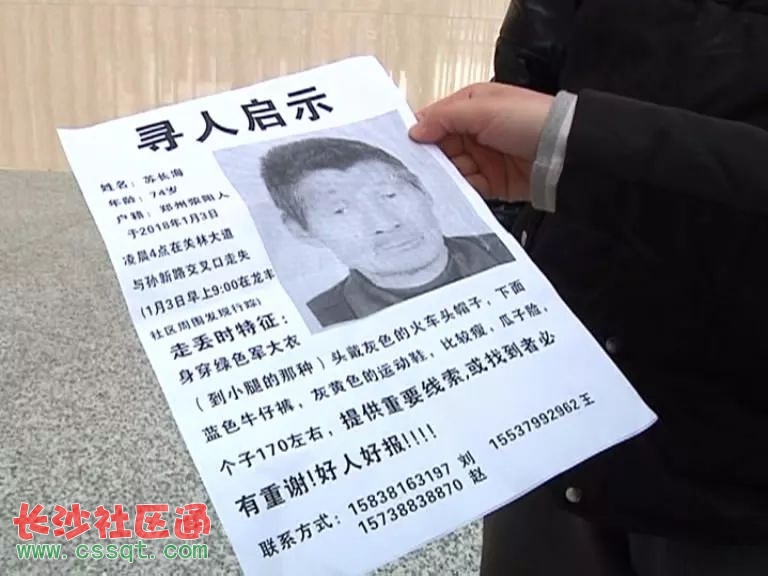 寻人启示
姓名：苏长海
年龄：74岁
户籍：郑州荥阳人
于2018年1月3日
凌晨4点在关林大道
与孙新路交叉口走失
(1月3日早上9:00在龙丰
社区周围发现行踪)
走丢时特征：
身穿绿色军大衣
（到小腿的那种）头戴灰色的火车头帽子，下面
蓝色牛仔裤，灰黄色的运动鞋，比较瘦，瓜子脸，
个子170左右，提供重要线索,或找到者必
有重谢!好人好报!!!!
联系方式：15838163197 刘 15537992962 王
15738838870 赵
长沙社区通
www.cssqt.com